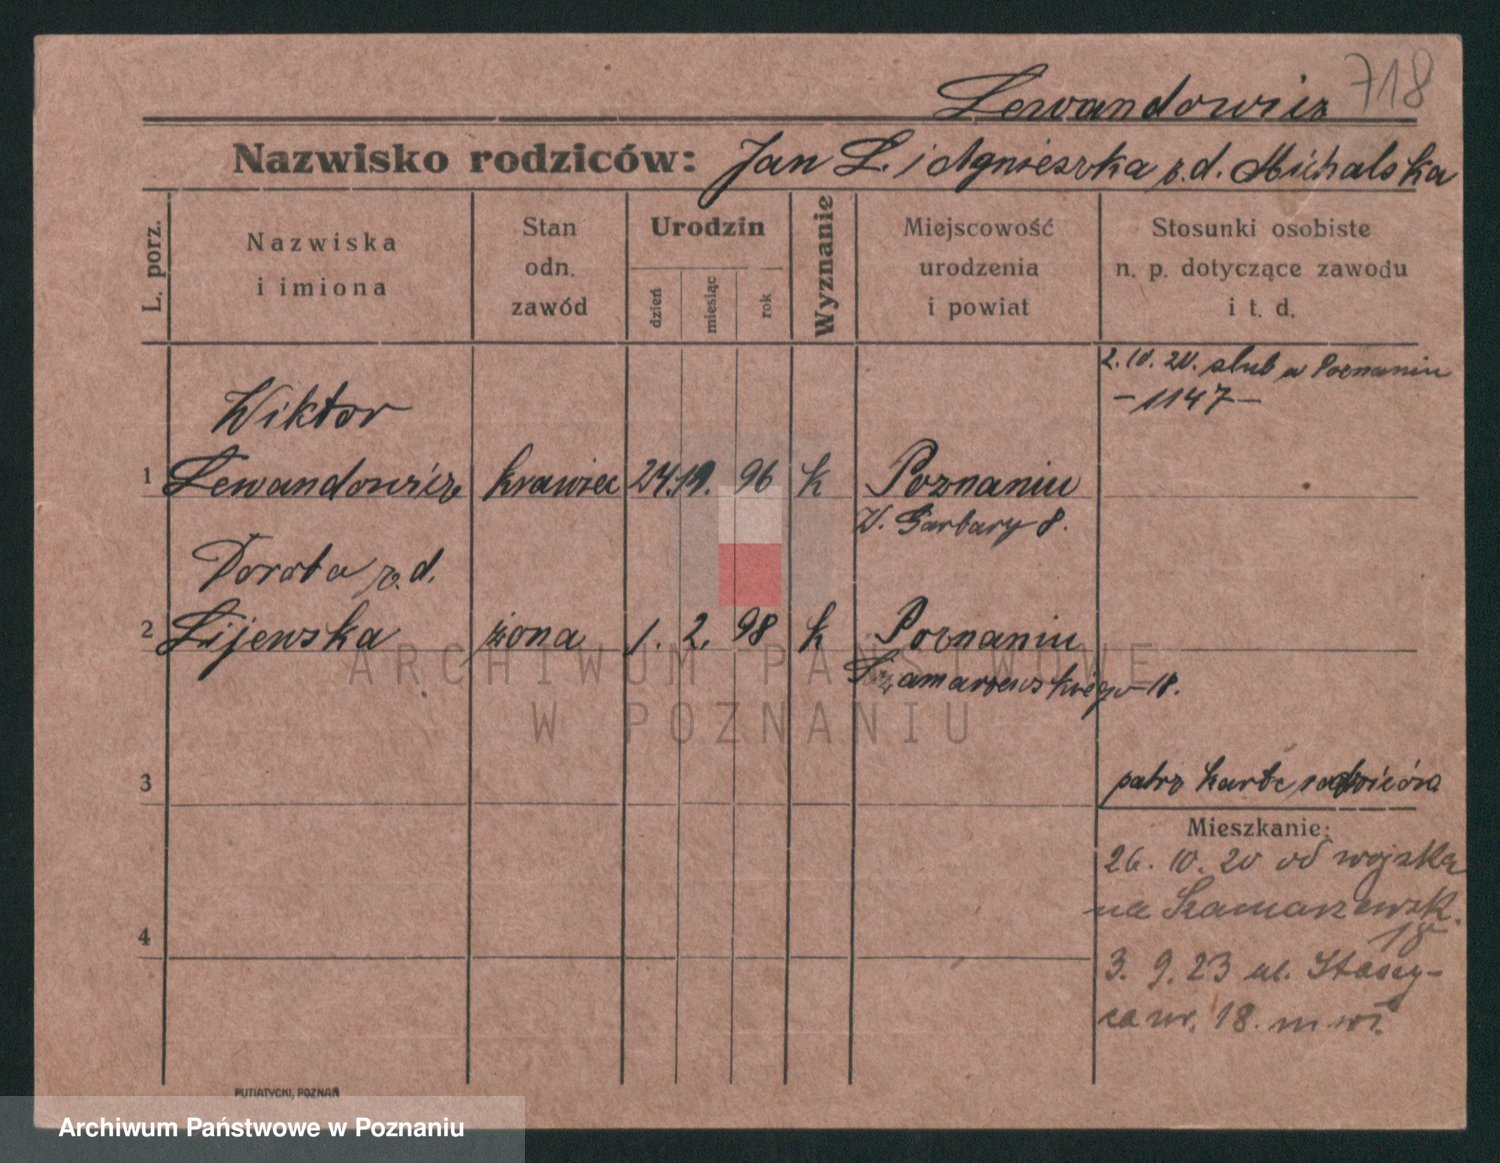 718
Lewandowicz
Nazwisko rodziców: Jan L. i Agnieszka z.d. Michalska
L. porz.
Nazwiska
i imiona
Stan
odn.
zawód
Urodzin
dzień
miesiąc
rok
Wyznanie
Miejscowość
urodzenia
i powiat
Stosunki osobiste
n. p. dotyczące zawodu
i t. d.
2. 10. 20. slub w Poznaniu
— 1147 —
Wiktor
1 Lewandowicz krawiec 24. 96 k Poznaniu
W. Garbary 8.
Dorota z. d.
2 Lijewska żona 1. 2. 98 k Poznaniu
Szamarzewskiego 18.
3
patrz kartę rodziców
Mieszkanie:
26. 10. 20 od wojska
na Szamarzewsk.
18
4
3. 9. 23 ul. Staszy-
ca nr. 18. m
PUTIATYCKI, POZNAŃ
ARCHIWUM PAŃSTWOWE
W POZNANIU
Archiwum Państwowe w Poznaniu